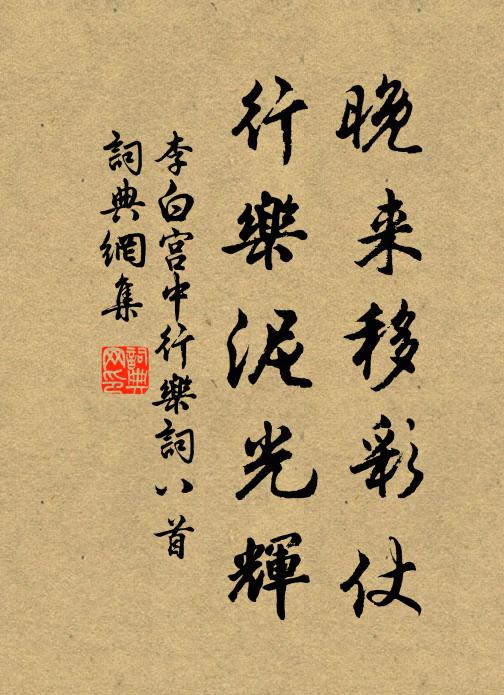 晚来移彩仗
行樂泥光輝
李白宫中行樂詞八首
詞典網集
詞典網印